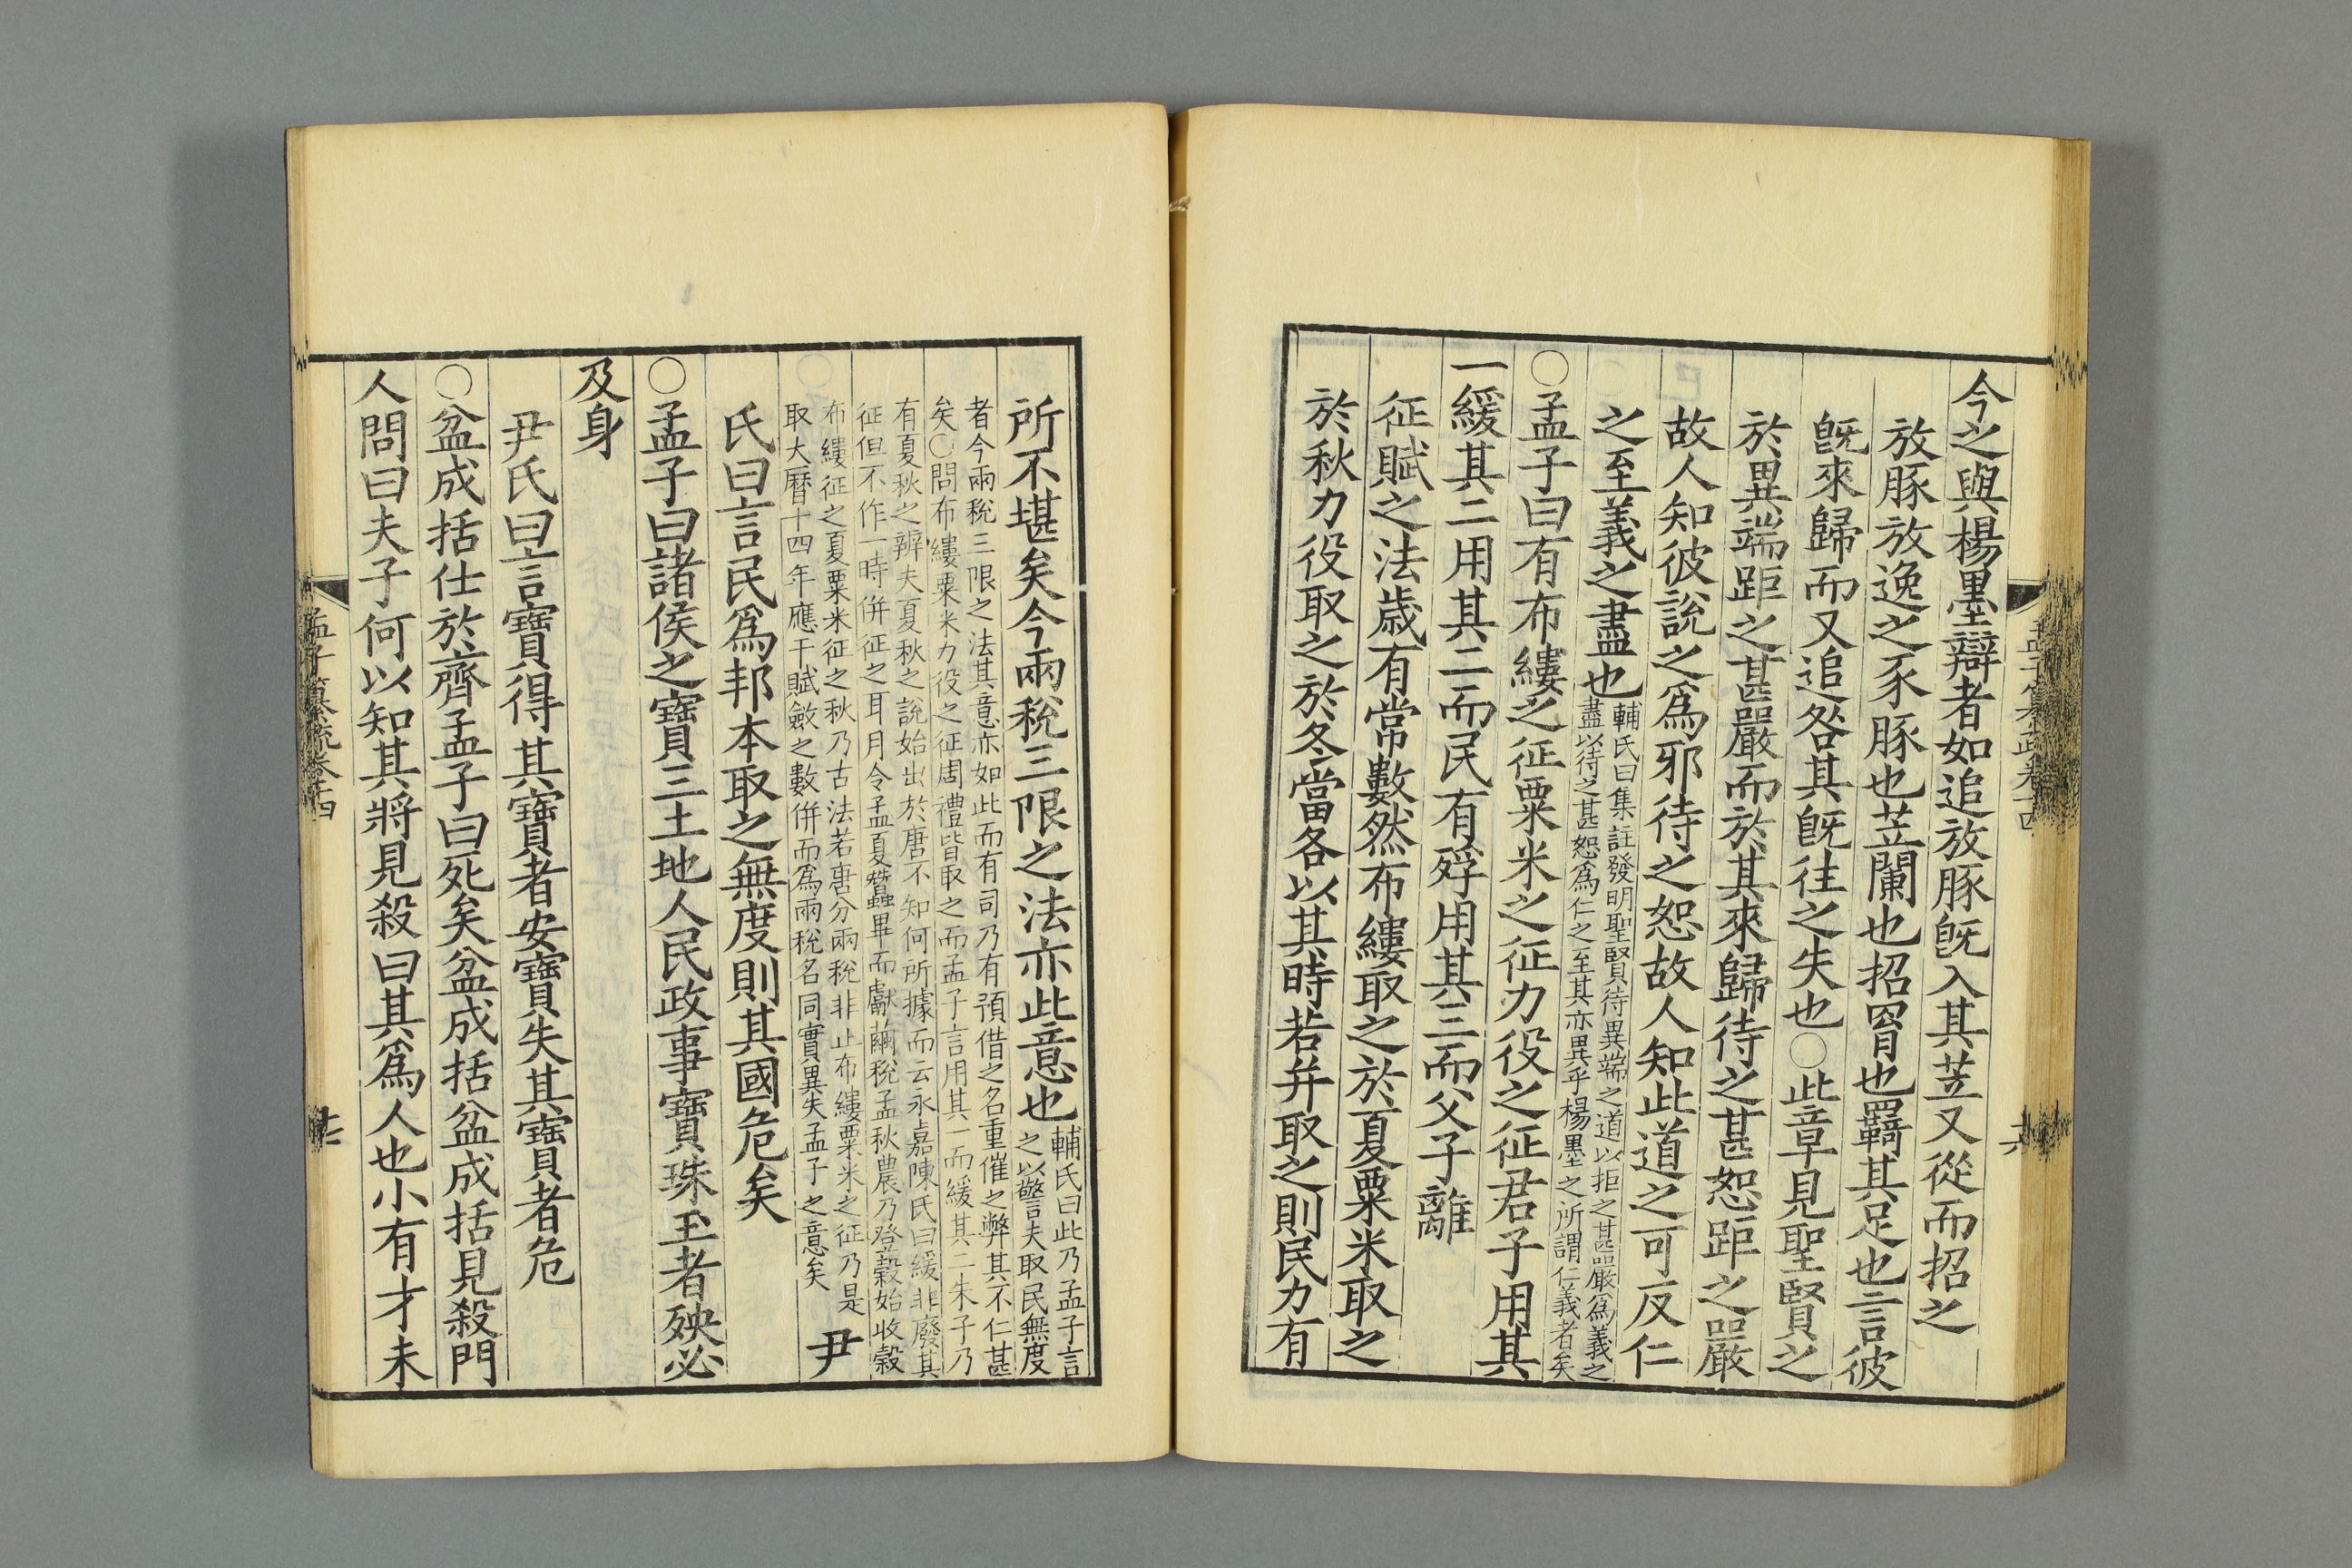 今之與楊墨辯者如追放豚旣入其苙又從而招之
放豚放逸之豕豚也苙闌也招罥也羈其足也言彼
旣來歸而又追咎其旣往之失也○此章見聖賢之
於異端距之甚嚴而於其來歸待之甚恕距之嚴
故人知彼說之爲邪待之恕故人知此道之可反仁
之至義之盡也
輔氏曰集註發明聖賢待異端之道以拒之甚嚴爲義之
盡以待之甚恕爲仁之至其亦異乎楊墨之所謂仁義者矣
○孟子曰有布縷之征粟米之征力役之征君子用其
一緩其二用其二而民有殍用其三而父子離
征賦之法歲有常數然布縷取之於夏粟米取之
於秋力役取之於冬當各以其時若幷取之則民力有
所不堪矣今兩稅三限之法亦此意也
輔氏曰此乃孟子言
之以警夫取民無度
者今兩稅三限之法其意亦如此而有司乃有預借之名重催之弊其不仁甚
矣○問布縷粟米力役之征周禮皆取之而孟子言用其一而緩其二朱子乃
有夏秋之辨夫夏秋之說始出於唐不知何所據而云永嘉陳氏曰緩非廢其
征但不作一時併征之耳月令孟夏蠶畢而獻繭稅孟秋農乃登穀始收穀
布縷征之夏粟米征之秋乃古法若唐分兩稅非止布縷粟米之征乃是
取大曆十四年應干賦斂之數併而爲兩稅名同實異失孟子之意矣
尹
氏曰言民爲邦本取之無度則其國危矣
○孟子曰諸侯之寶三土地人民政事寶珠玉者殃必
及身
尹氏曰言寶得其寶者安寶失其寶者危
○盆成括仕於齊孟子曰死矣盆成括盆成括見殺門
人問曰夫子何以知其將見殺曰其爲人也小有才未
孟子纂疏卷十四